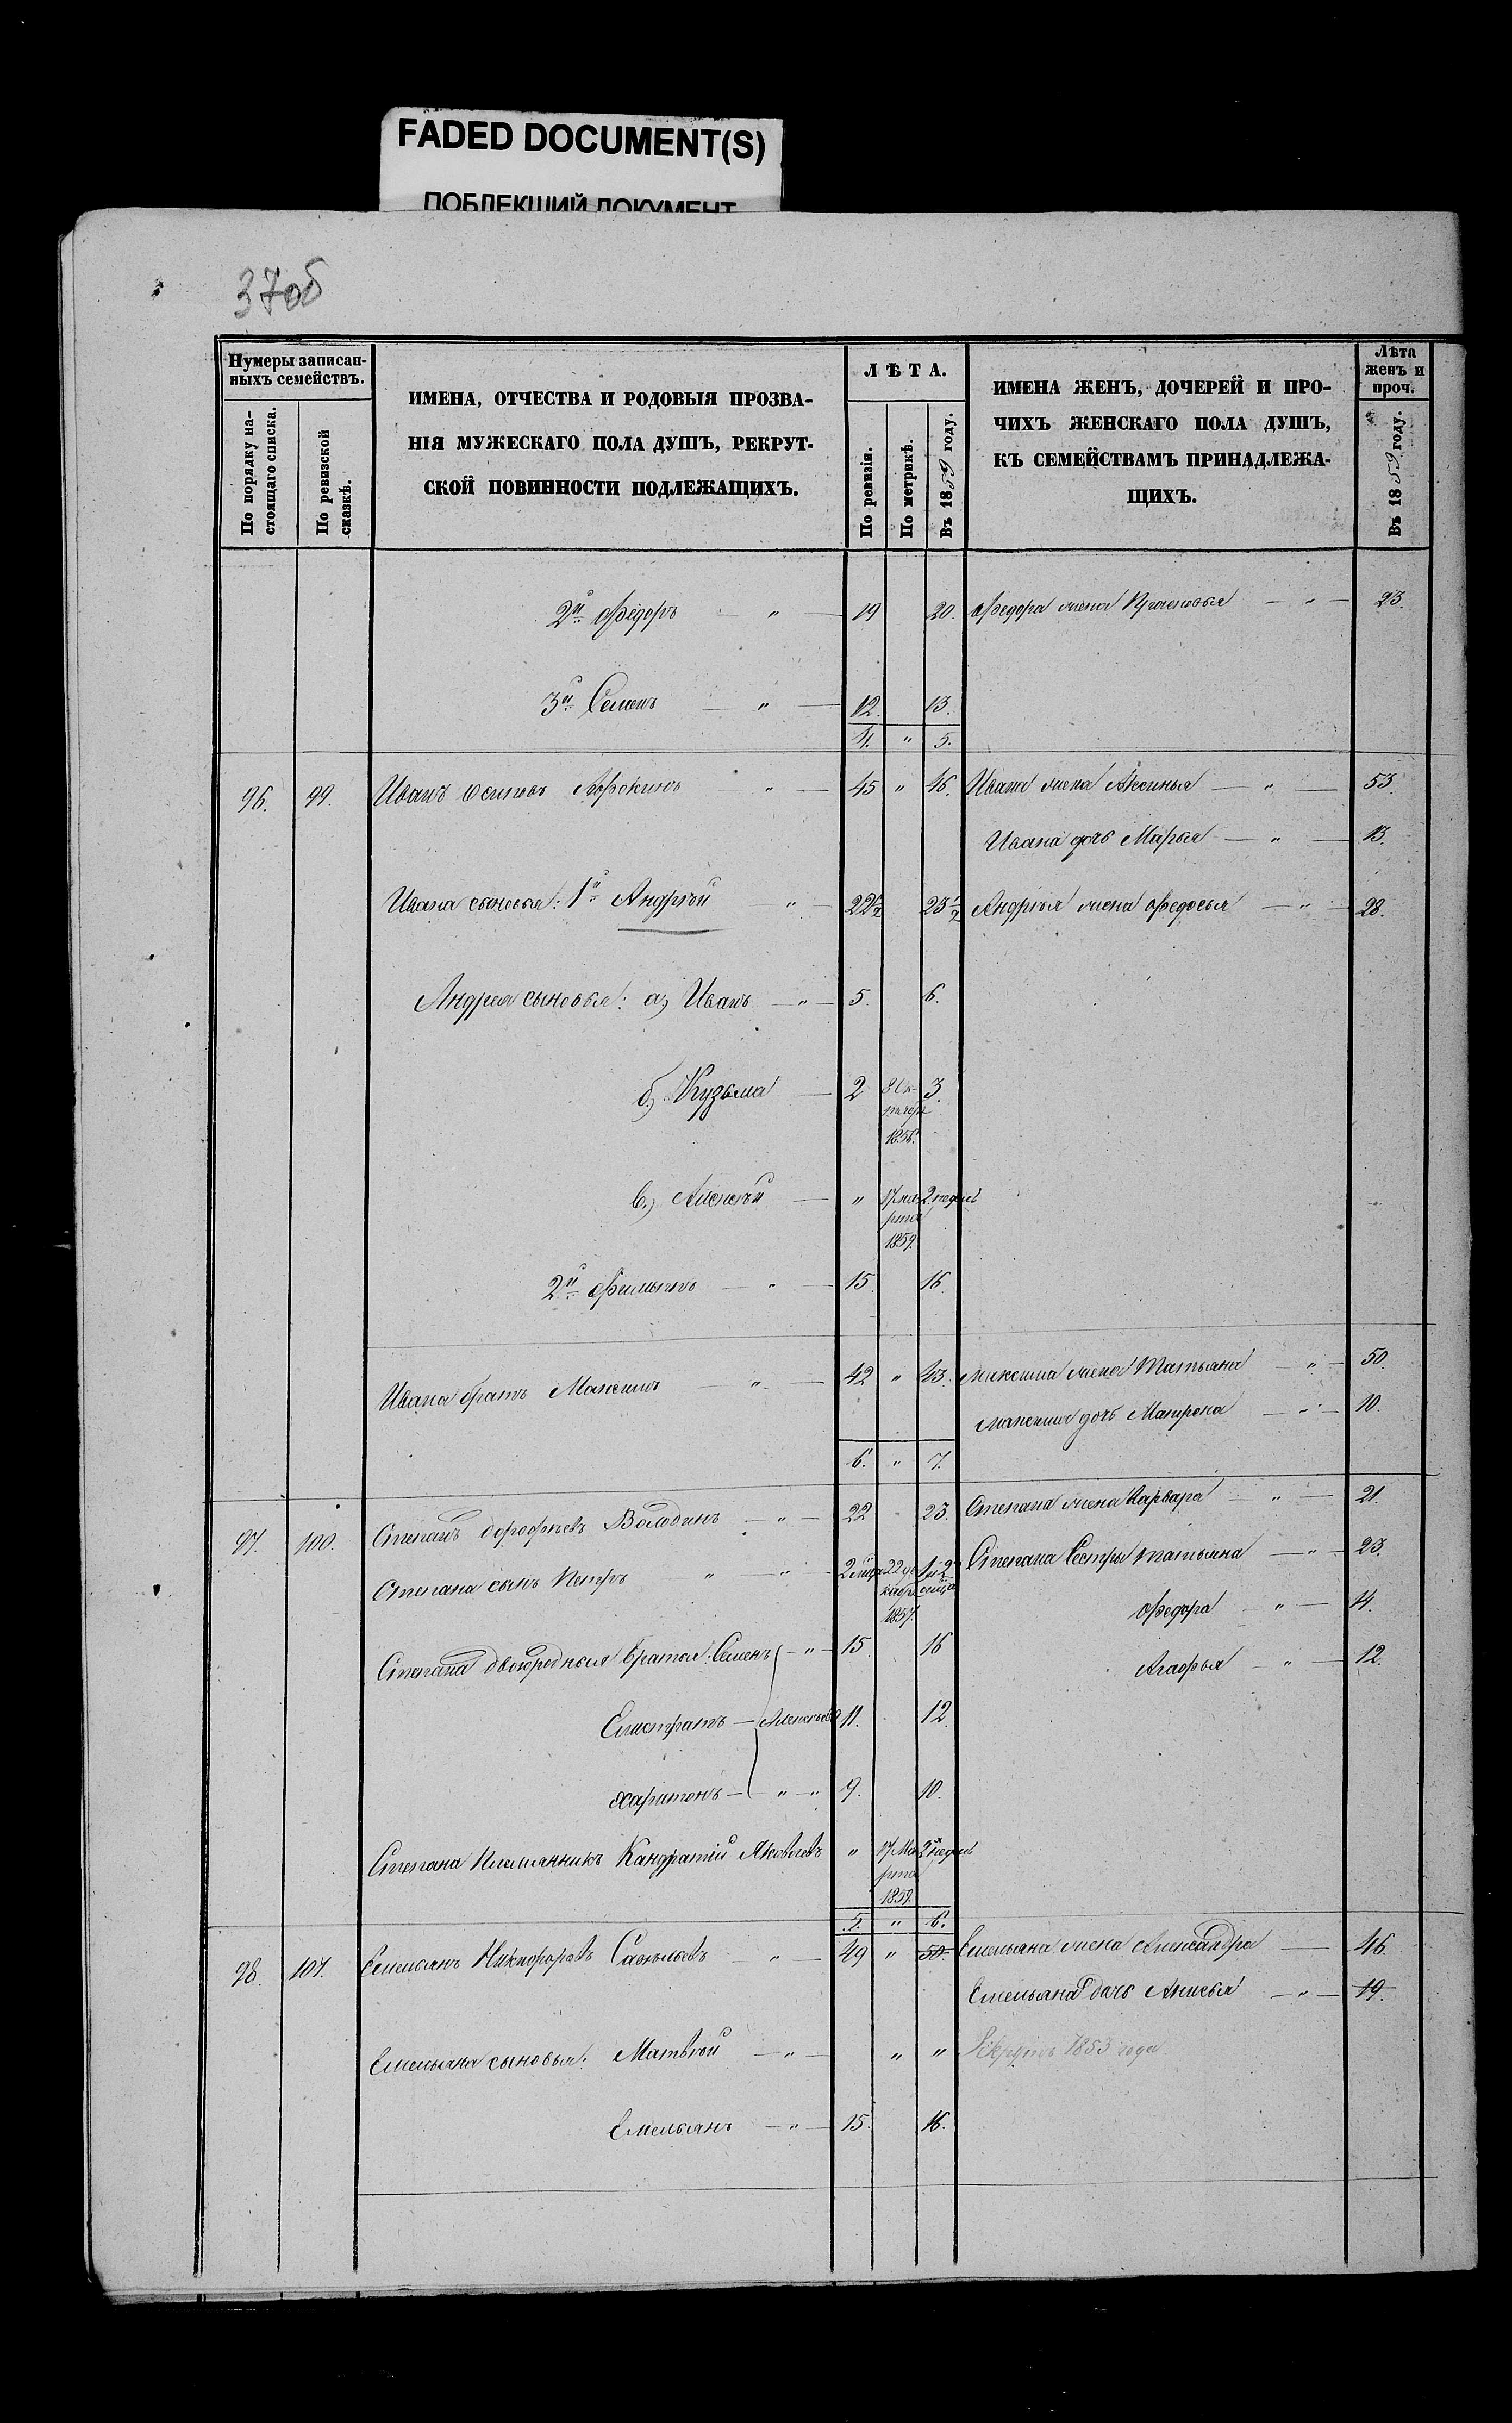 FADED DOCUMENT(S)
ПОБЛЕКШИЙ ДОКУМЕНТ
37об
Нумеры записан-
ныхъ семействъ.
По порядку на-
стоящаго списка.
По ревизской
сказкѣ.
ИМЕНА, ОТЧЕСТВА И РОДОВЫЯ ПРОЗВА-
НІЯ МУЖЕСКАГО ПОЛА ДУШЪ, РЕКРУТ-
СКОЙ ПОВИННОСТИ ПОДЛЕЖАЩИХЪ.
ЛѢТА.
По ревизіи.
По метрикѣ.
Въ 1859 году.
ИМЕНА ЖЕНЪ, ДОЧЕРЕЙ И ПРО-
ЧИХЪ ЖЕНСКАГО ПОЛА ДУШЪ,
КЪ СЕМЕЙСТВАМЪ ПРИНАДЛЕЖА-
ЩИХЪ.
Лѣта
женъ и
проч.
Въ 1859 году.
2й Ѳедоръ — " — 19 20. Ѳедора жена — " — 23.
3й Семенъ — " — 12. 13.
4. " 5.
96. 99. Иванъ Осиповъ " — 45 " 46. Ивана жена Аксинья — " — 53.
Ивана дочь Марья — " — 13.
Ивана сыновья: 1й Андрѣй — " — 22½ 23½ Андрѣя жена Ѳедосья — " — 28.
Андрея сыновья: а) Иванъ — " — 5. 6.
б) Кузьма — 2 8 Ок- 3.
тября
1856.
в) Алексѣй — " 17 ма- 2 недѣль
рта
1859.
2й Филипъ — " — 15. 16.
Ивана братъ Максимъ — " — 42 " 43. Максима жена Татьяна — " — 50.
Максима дочь Матрена — " — 10.
6. " 7.
97. 100. Степанъ Дорофѣевъ Володинъ — " — 22 23. Степана жена Варвара — " — 21.
Степана сынъ Петръ " — " — 2 мѣца 22 де- 1 и 2 Степана Сестры Татьяна — " — 23.
кабря мѣца
1857.
Ѳедора — " — 14.
Степана двоюродныя братья: Семенъ — " — 15. 16
Агафья — " — 12.
Елистратъ — Алексѣевы 11. 12.
Харитонъ — " — " 9. 10.
Степана Племянникъ Кандратій Яковлевъ " 17 Ма- 2 недѣль
рта
1859.
5. " 6.
98. 101. Емельянъ Никифоровъ Савельевъ — " — 49 " 50. Емельяна жена Александра — 46.
Емельяна дочь Анисья — " — 19.
Емельяна сыновья: Матвѣй — " — " " Рекрутъ 1853 года
Емельянъ — " — 15. 16.